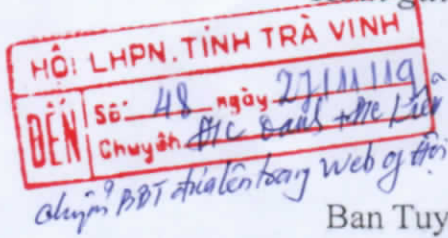 HỘI LHPN. TỈNH TRÀ VINH
ĐẾN
Số: 48 ngày 27/11/19
Chuyển đ/c Oanh + đ/c
chuyển BBT đưa lên trang Web of Hội
Ban Tuy